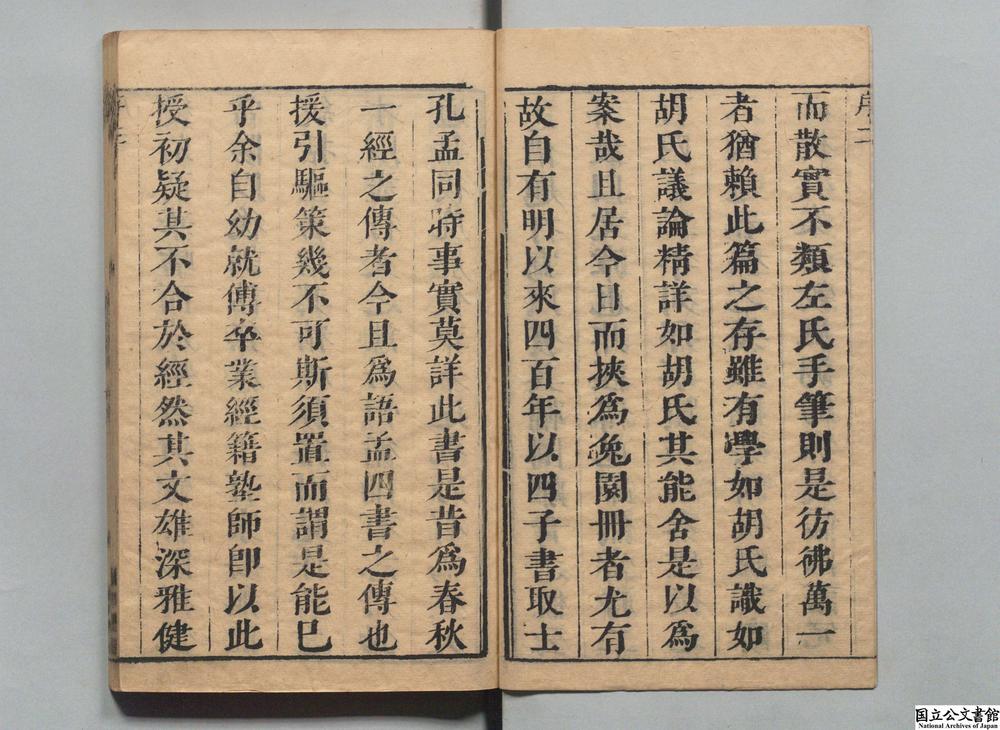 序二
而散實不類左氏手筆則是彷彿萬一
者猶賴此篇之存雖有學如胡氏識如
胡氏議論精詳如胡氏其能舍是以爲
案哉且居今日而挾爲兔園冊者尤有
故自有明以來四百年以四子書取士
孔孟同時事實莫詳此書是昔爲春秋
一經之傳者今且爲語孟四書之傳也
援引驅策幾不可斯須置而謂是能已
乎余自幼就傅卒業經籍塾師即以此
授初疑其不合於經然其文雄深雅健
国立公文書館
National Archives of Japan